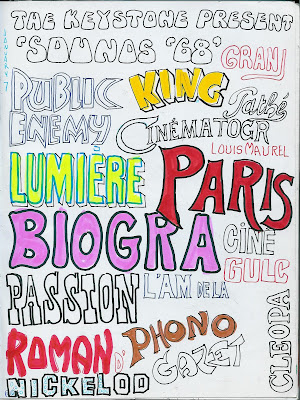 THE KEYSTONE PRESENT
"SOUNDS '68"
GRANJ
PUBLIC
ENEMY
KING
Pathé
CINÉMATOGR
LOUIS MAUREL
LUMIÈRE
PARIS
BIOGRA
CINÉ
GULC
PASSION
L'AM DE LA
ROMAN
D'
PHONO
GAZET
CLEOPA
NICKELOD